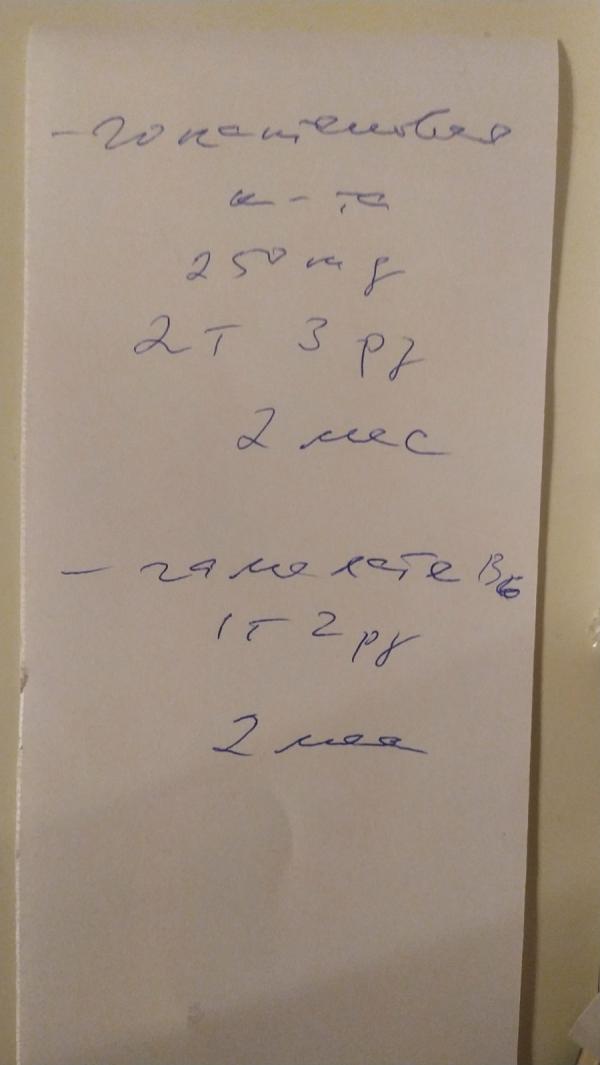 - гопантеновая
к-та
250 mg
2т 3 рд
2 мес
- гамалате B6
1т 2 рд
2 мес